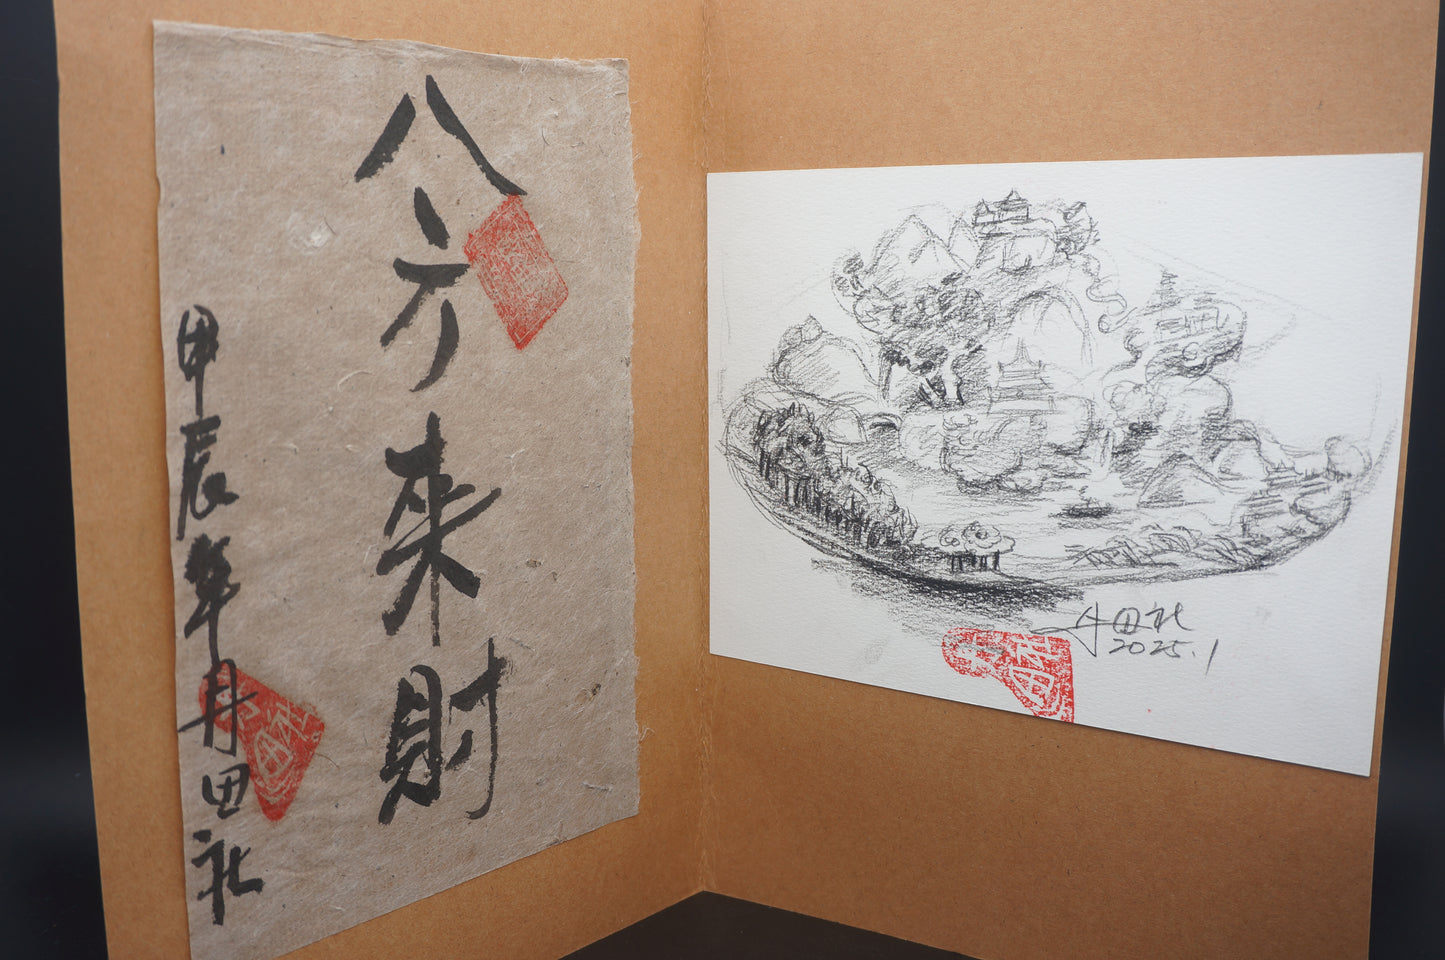 八方來財
甲辰年丹田社
丹田社
2025.1